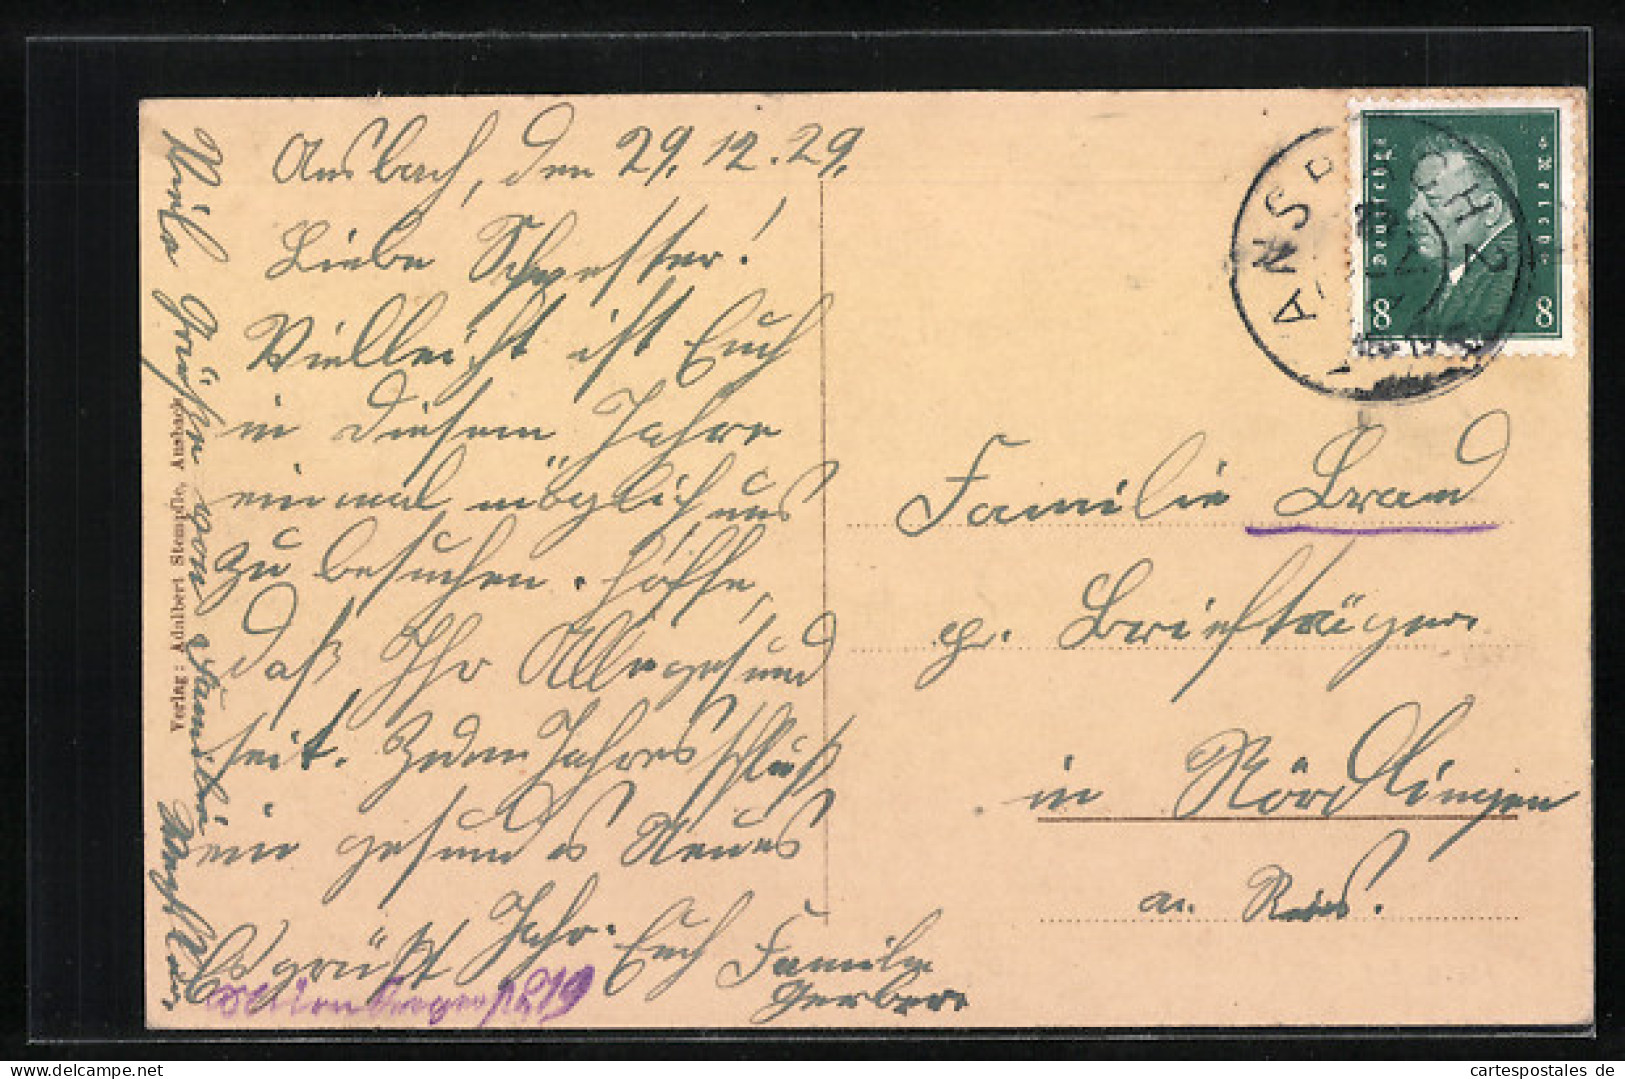 Ansbach, den 29. 12. 29.
Liebe Schwester!
Vielleicht ist Euch
in diesem Jahre
einmal möglich uns
zu besuchen. Hoffe,
daß Ihr Alle gesund
seit. Zum Jahresschluß
ein gesundes Neues
Jahr.
Es grüßt Euch Familie
Gerber
Viele Grüße von Familie
Verlag: Adalbert Stempfle, Ansbach
ANSBACH 2
Deutsches Reich
8 8
Familie Brand
Briefträger
in Nördlingen
a. Ries.